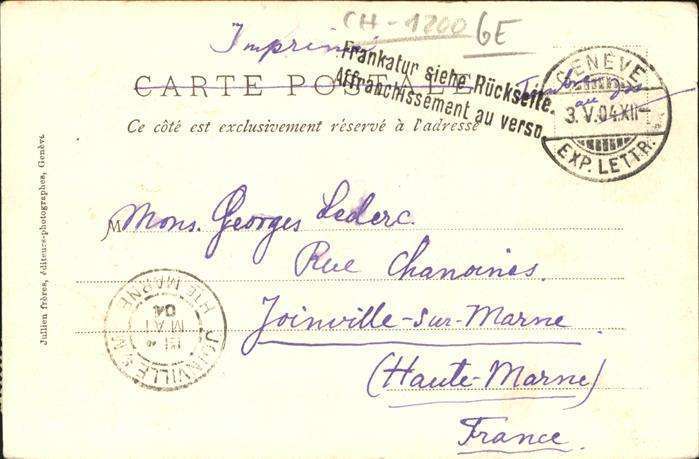 CH-1200 GE
Imprimé
CARTE POSTALE
Frankatur siehe Rückseite.
Affranchissement au verso.
Timbre
au
GENÈVE
3.V.04.XII-
EXP. LETTR.
Ce côté est exclusivement réservé à l'adresse
M Mons. Georges Leclerc.
Rue Chanoines.
Joinville-sur-Marne
(Haute-Marne)
France.
JOINVILLE
MAI
04
HTE MARNE
Jullien frères, éditeurs-photographes, Genève